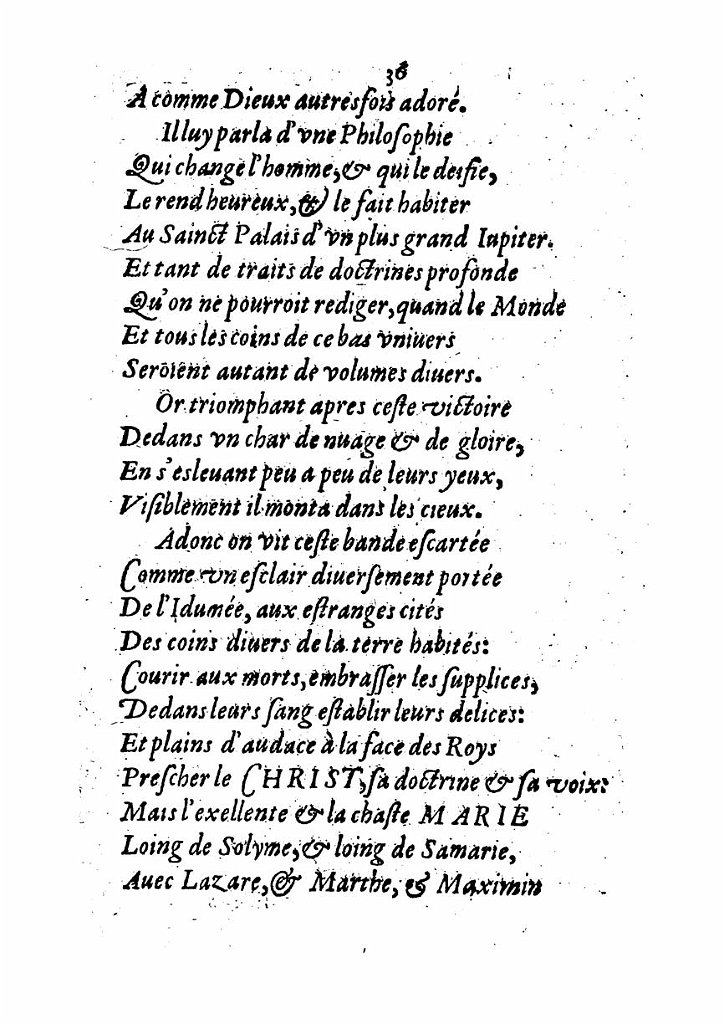 36
A comme Dieux autresfois adoré.
Illuy parla d'vne Philosophie
Qui change l'homme, & qui le deifie,
Le rend heureux, & le fait habiter
Au Sainct Palais d'vn plus grand Iupiter.
Et tant de traits de doctrines profonde
Qu'on ne pourroit rediger, quand le Monde
Et tous les coins de ce bas vniuers
Seroient autant de volumes diuers.
Or triomphant apres ceste victoire
Dedans vn char de nuage & de gloire,
En s'esleuant peu a peu de leurs yeux,
Visiblement il monta dans les cieux.
Adonc on vit ceste bande escartée
Comme vn esclair diuersement portée
De l'Idumée, aux estranges cités
Des coins diuers de la terre habités:
Courir aux morts, embrasser les supplices,
Dedans leurs sang establir leurs delices:
Et plains d'audace à la face des Roys
Prescher le CHRIST, sa doctrine & sa voix:
Mais l'exellente & la chaste MARIE
Loing de Solyme, & loing de Samarie,
Auec Lazare, & Marthe, & Maximin